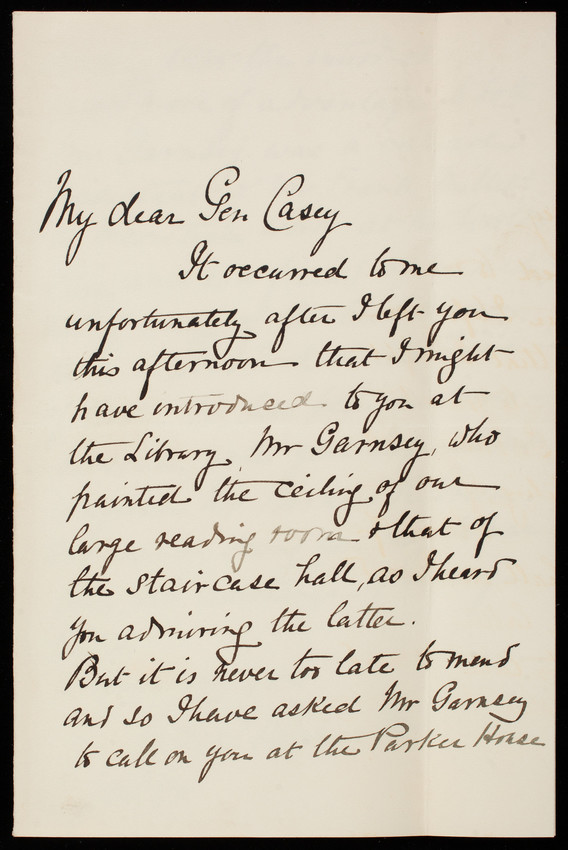 My dear Gen Casey
It occurred to me
unfortunately after I left you
this afternoon that I might
have introduced to you at
the Library, Mr Garnsey, who
painted the ceiling of our
large reading room & that of
the staircase hall, as I heard
you admiring the latter.
But it is never too late to mend
and so I have asked Mr Garnsey
to call on you at the Parker House